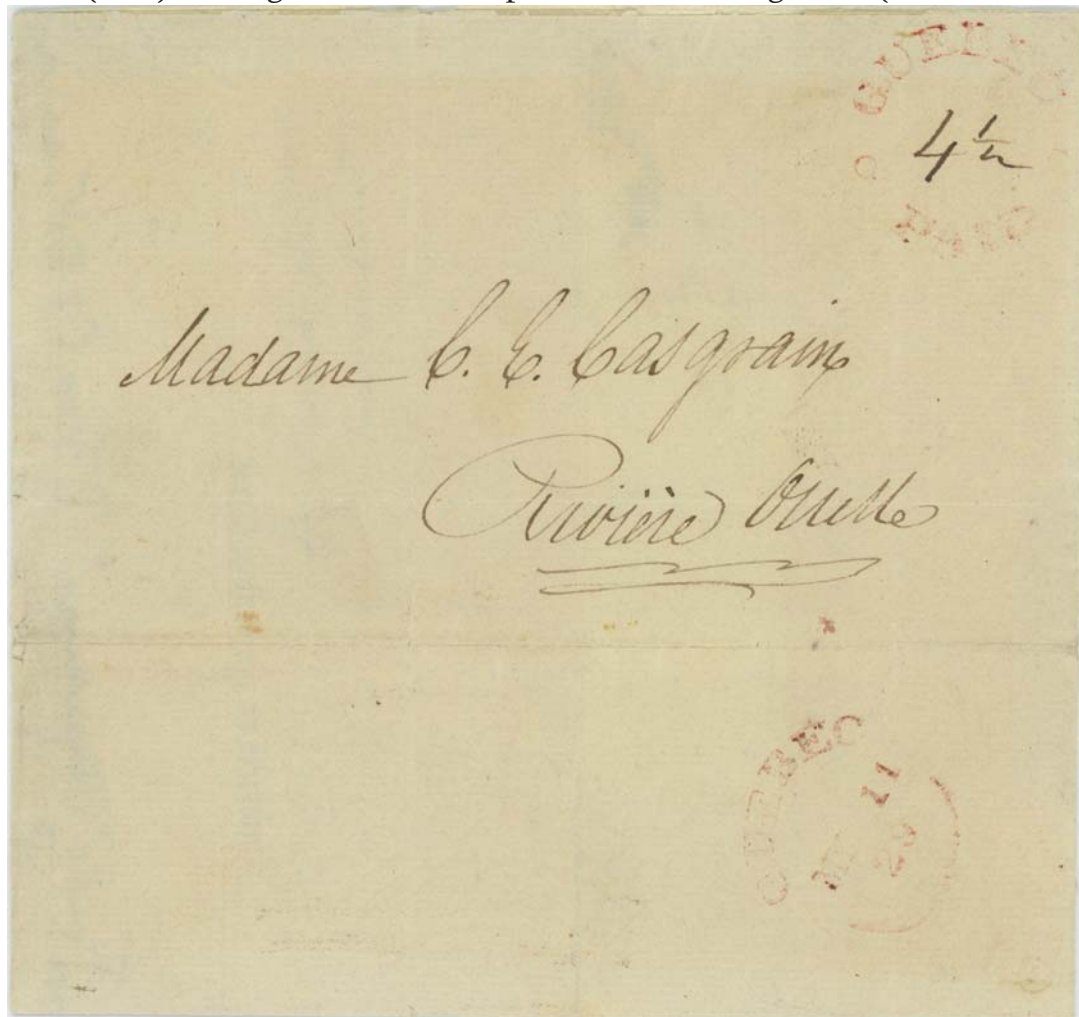 QUEBEC
4 1/2
PAID
Madame C. E. Casgrain
Rivière Ouelle
QUEBEC
11
29